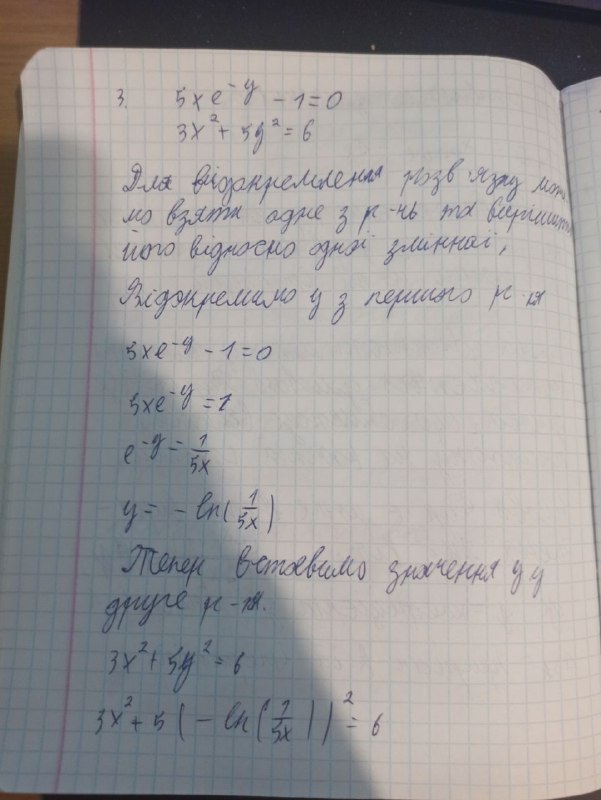 3. 5xe^{-y} - 1 = 0
3x² + 5y² = 6
Для відокремлення розв'язку мож-
мо взяти одне з р-нь та вирішити
його відносно одної змінної,
Відокремимо y з першого р-ня
5xe^{-y} - 1 = 0
5xe^{-y} = 1
e^{-y} = \frac{1}{5x}
y = - ln(\frac{1}{5x})
Тепер вставимо значення y у
друге р-ня.
3x² + 5y² = 6
3x² + 5(- ln(\frac{1}{5x}))² = 6